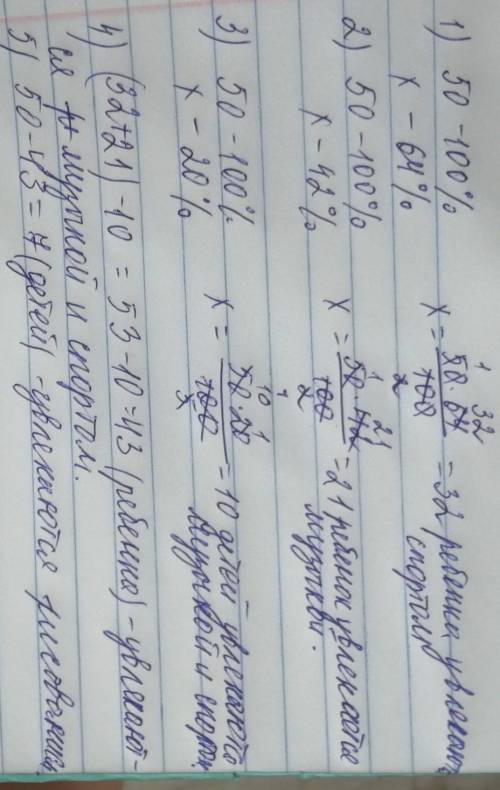 1) 50 - 100%
x - 64% x = 50 · 64 / 100 = 32 ребенка увлекаются
спортом
2) 50 - 100%
x - 42% x = 50 · 42 / 100 = 21 ребенок увлекается
музыкой.
3) 50 - 100%
x - 20% x = 50 · 20 / 100 = 10 детей увлекаются
музыкой и спортом.
4) (32+21) - 10 = 53 - 10 = 43 (ребенка) - увлекают-
ся музыкой и спортом.
5) 50 - 43 = 7 (детей) - увлекаются рисованием.